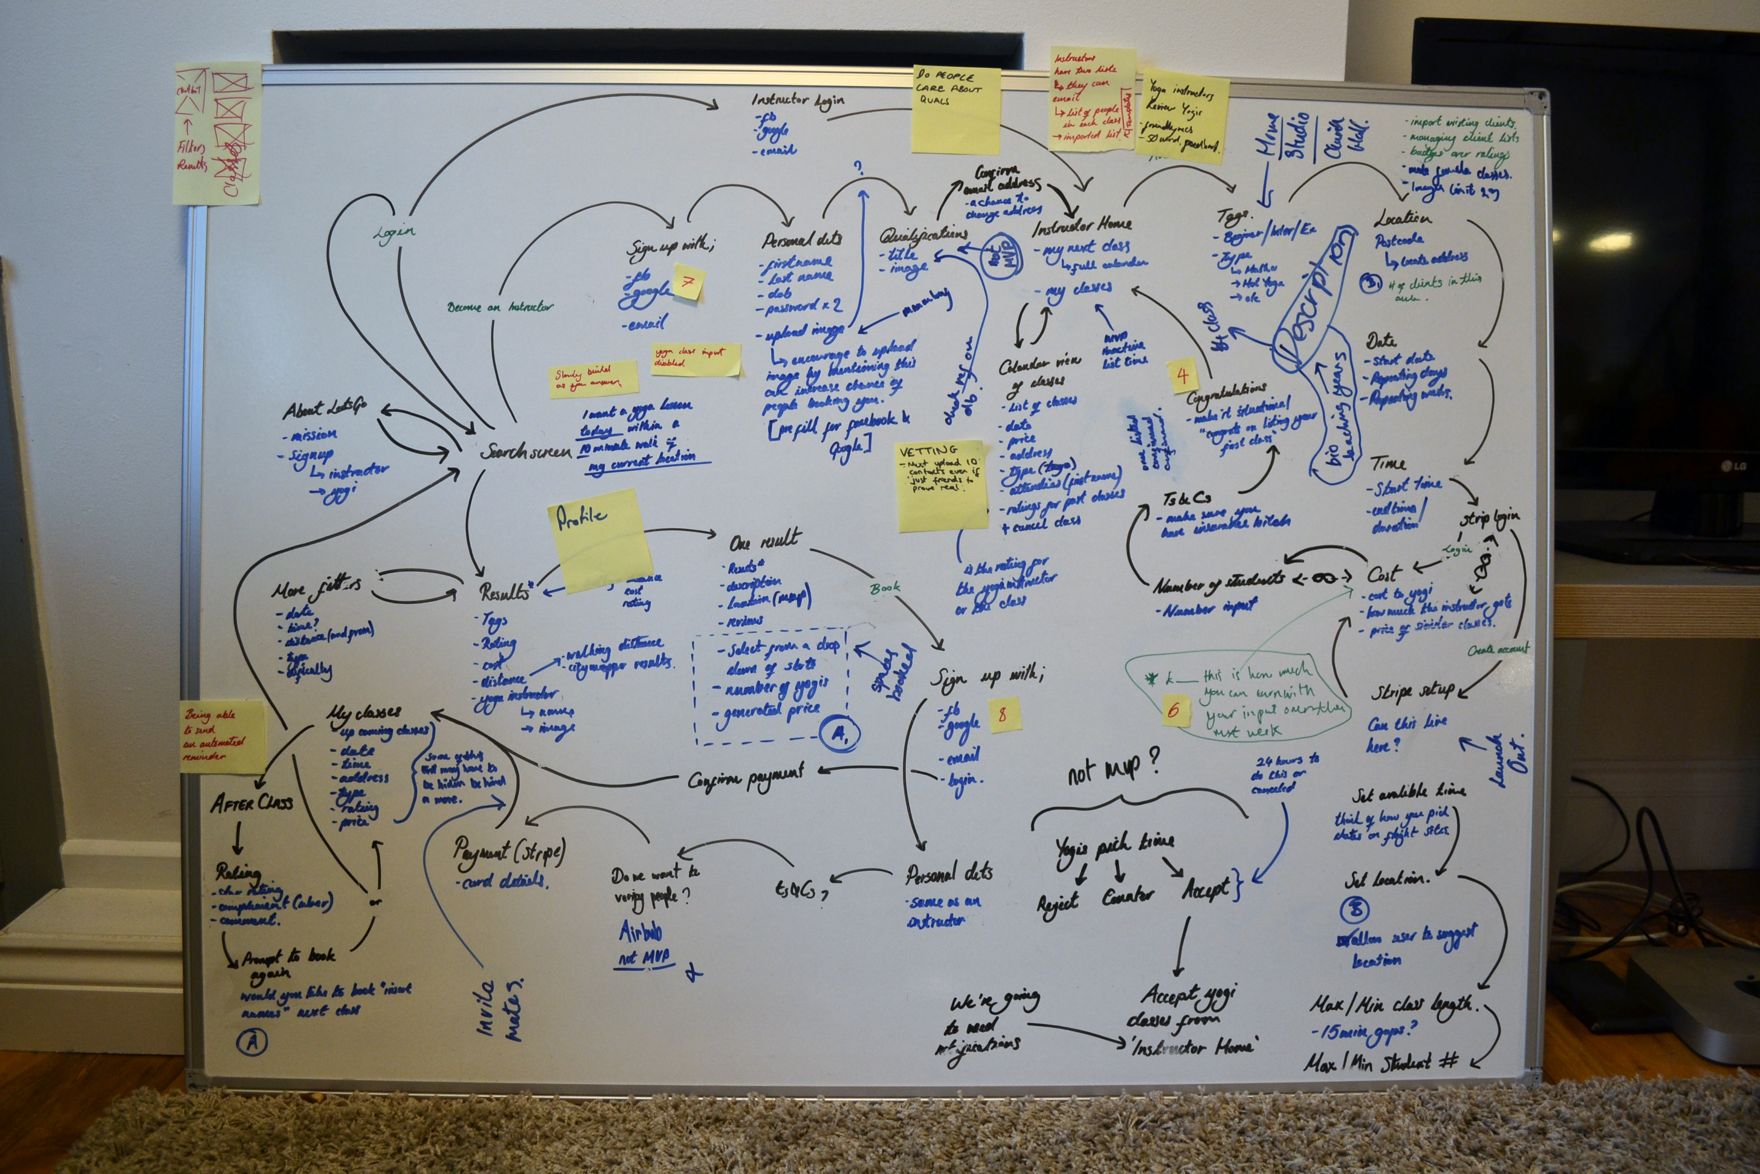 Filter
Results
Classes
Instructor Login
- fb
- google
- email
DO PEOPLE
CARE ABOUT
QUALS
Instructors
have two lists
they can
email
↳ List of people
in each class
→ imported list
Templates
Yoga instructors
Review Yogis
- friendlyness
Home
Studio
- import existing clients.
- managing client lists
- badges over ratings
Login
Become an Instructor
Sign up with;
- fb
- google
- email
7
Personal dets
- first name
- last name
- dob
- password x 2
- upload image
↳ encourage to upload
image by mentioning this
can increase chance of
people booking you.
[prefill for facebook &
Google]
?
Qualifications
- title
- image
Confirm
email address
- a chance to
change address
NOT
MVP
Instructor Home
- my next class
↳ full calendar
- my classes
Tags.
- Beginner/Inter/Ex
- Type
↳ Hatha
→ Hot Yoga
→ etc
Description
bio
teaching years
Location
Postcode
↳ Create address
# of clients in this
area.
Date
- Start date
- Repeating days
- Repeating weeks.
Time
- Start time
- end time/
duration
Strip login
Login
Slowly build
as you answer
yoga class input
disabled
I want a yoga lesson
today within a
10 minute walk of
my current location
About LetsGo
- mission
- signup
↳ instructor
→ yogi
Search screen
Calendar view
of classes
- List of classes
- date
- price
- address
- type (tags)
- attendies (first name)
- ratings for past classes
+ cancel class
MVP
list time
4
Congratulations
- make it situational
"congrats on listing your
first class"
Ts & Cs
- make sure you
have insurance bitch
VETTING
- Must upload 10
contacts even if
just friends to
prove real.
is the rating for
the yoga instructor
or the class
Number of students
- Number input
Cost
- cost to yogi
- how much the instructor gets
- price of similar classes.
Create account
Profile
cost
rating
More filters
- date
- time?
- type
Results*
- Tags
- Rating
- cost
- distance
- yoga instructor
↳ name
→ image
- walking distance
- citymapper results.
One result
- Results*
- description
- Location (map)
- reviews
- Select from a drop
down of slots
- number of yogis
- generated price
A.
Book
spaces
booked
Sign up with;
- fb
- google
- email
- login.
8
* £___ this is how much
you can earn with
your input over the
next week
6
Stripe setup
Can this live
here?
Launch
Out.
Being able
to send
an automated
reminder
My classes
- up coming classes
- date
- time
- address
- type
- rating
- price
Some of this
may have to
be hidden behind
a more.
Confirm payment
not mvp?
24 hours to
do this or
canceled
Set available time
think of how you pick
dates on flight sites
AFTER CLASS
Rating
- star rating
- compliment (uber)
- comment.
or
Prompt to book
again
would you like to book "insert
names" next class
A
Invite
mates.
Payment (stripe)
- card details.
Do we want to
verify people?
Airbnb
not MVP
Ts&Cs?
Personal dets
- same as an
instructor
Yogis pick time
Reject
Counter
Accept
Accept yogi
classes from
'Instructor Home'
We're going
to need
notifications
Set Location.
allow user to suggest
location
Max / Min class length.
- 15 min gaps?
Max / Min Student #
LG